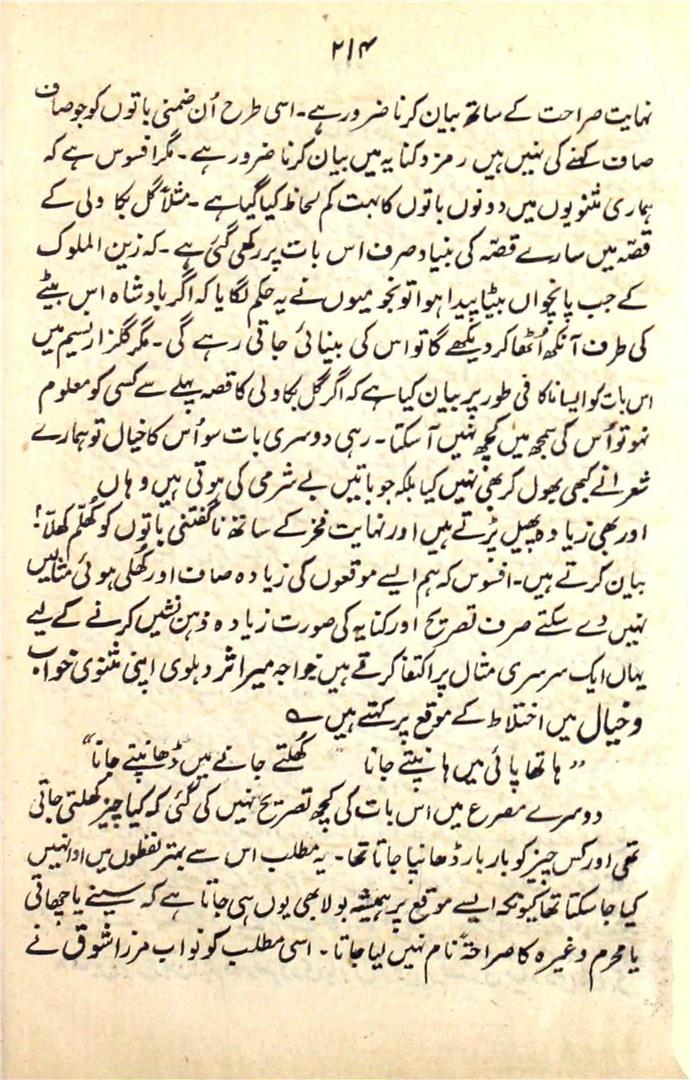 ۲۱۴
نہایت صراحت کے ساتھ بیان کرنا ضرور ہے۔ اسی طرح اُن ضمنی باتوں کو جو صاف
صاف کہنے کی نہیں ہیں رمز و کنایہ میں بیان کرنا ضرور ہے۔ مگر افسوس ہے کہ
ہماری مثنویوں میں دونوں باتوں کا بہت کم لحاظ کیا گیا ہے۔ مثلاً گل بکا ولی کے
قصہ میں سارے قصّہ کی بنیاد صرف اس بات پر رکھی گئی ہے۔ کہ زین الملوک
کے جب پانچواں بیٹا پیدا ہوا تو نجومیوں نے یہ حکم لگایا کہ اگر بادشاہ اس بیٹے
کی طرف آنکھ اُٹھا کر دیکھے گا تو اس کی بینائی جاتی رہے گی۔ مگر گلزار نسیم میں
اس بات کو ایسا ناکافی طور پر بیان کیا ہے کہ اگر گل بکاولی کا قصہ پہلے سے کسی کو معلوم
نہو تو اُس کی سمجھ میں کچھ نہیں آ سکتا۔ رہی دوسری بات سو اُس کا خیال تو ہمارے
شعرا نے کبھی بھول کر بھی نہیں کیا بلکہ جو باتیں بے شرمی کی ہوتی ہیں وہاں
اور بھی زیادہ پھیل پڑتے ہیں اور نہایت فخر کے ساتھ ناگفتنی باتوں کو کھُلّم کھُلّا!
بیان کرتے ہیں۔ افسوس کہ ہم ایسے موقعوں کی زیادہ صاف اور کھُلی ہوئی مثالیں
نہیں دے سکتے صرف تصریح اور کنایہ کی صورت زیادہ ذہن نشیں کرنے کے لیے
یہاں ایک سرسری مثال پر اکتفا کرتے ہیں خواجہ میر اثر دہلوی اپنی مثنوی خواب
و خیال میں اختلاط کے موقع پر کہتے ہیں ؎
"ہاتھا پائی میں ہانپتے جانا کھُلتے جانے میں ڈھانپتے جانا"
دوسرے مصرع میں اس بات کی کچھ تصریح نہیں کی گئی کہ کیا چیز کھلتی جاتی
تھی اور کس چیز کو بار بار ڈھانپا جاتا تھا۔ یہ مطلب اس سے بہتر لفظوں میں ادا نہیں
کیا جا سکتا تھا کیونکہ ایسے موقع پر ہمیشہ بولا بھی یوں ہی جاتا ہے کہ سینے یا چھاتی
یا محرم وغیرہ کا صراحتہً نام نہیں لیا جاتا۔ اسی مطلب کو نواب مرزا شوق نے